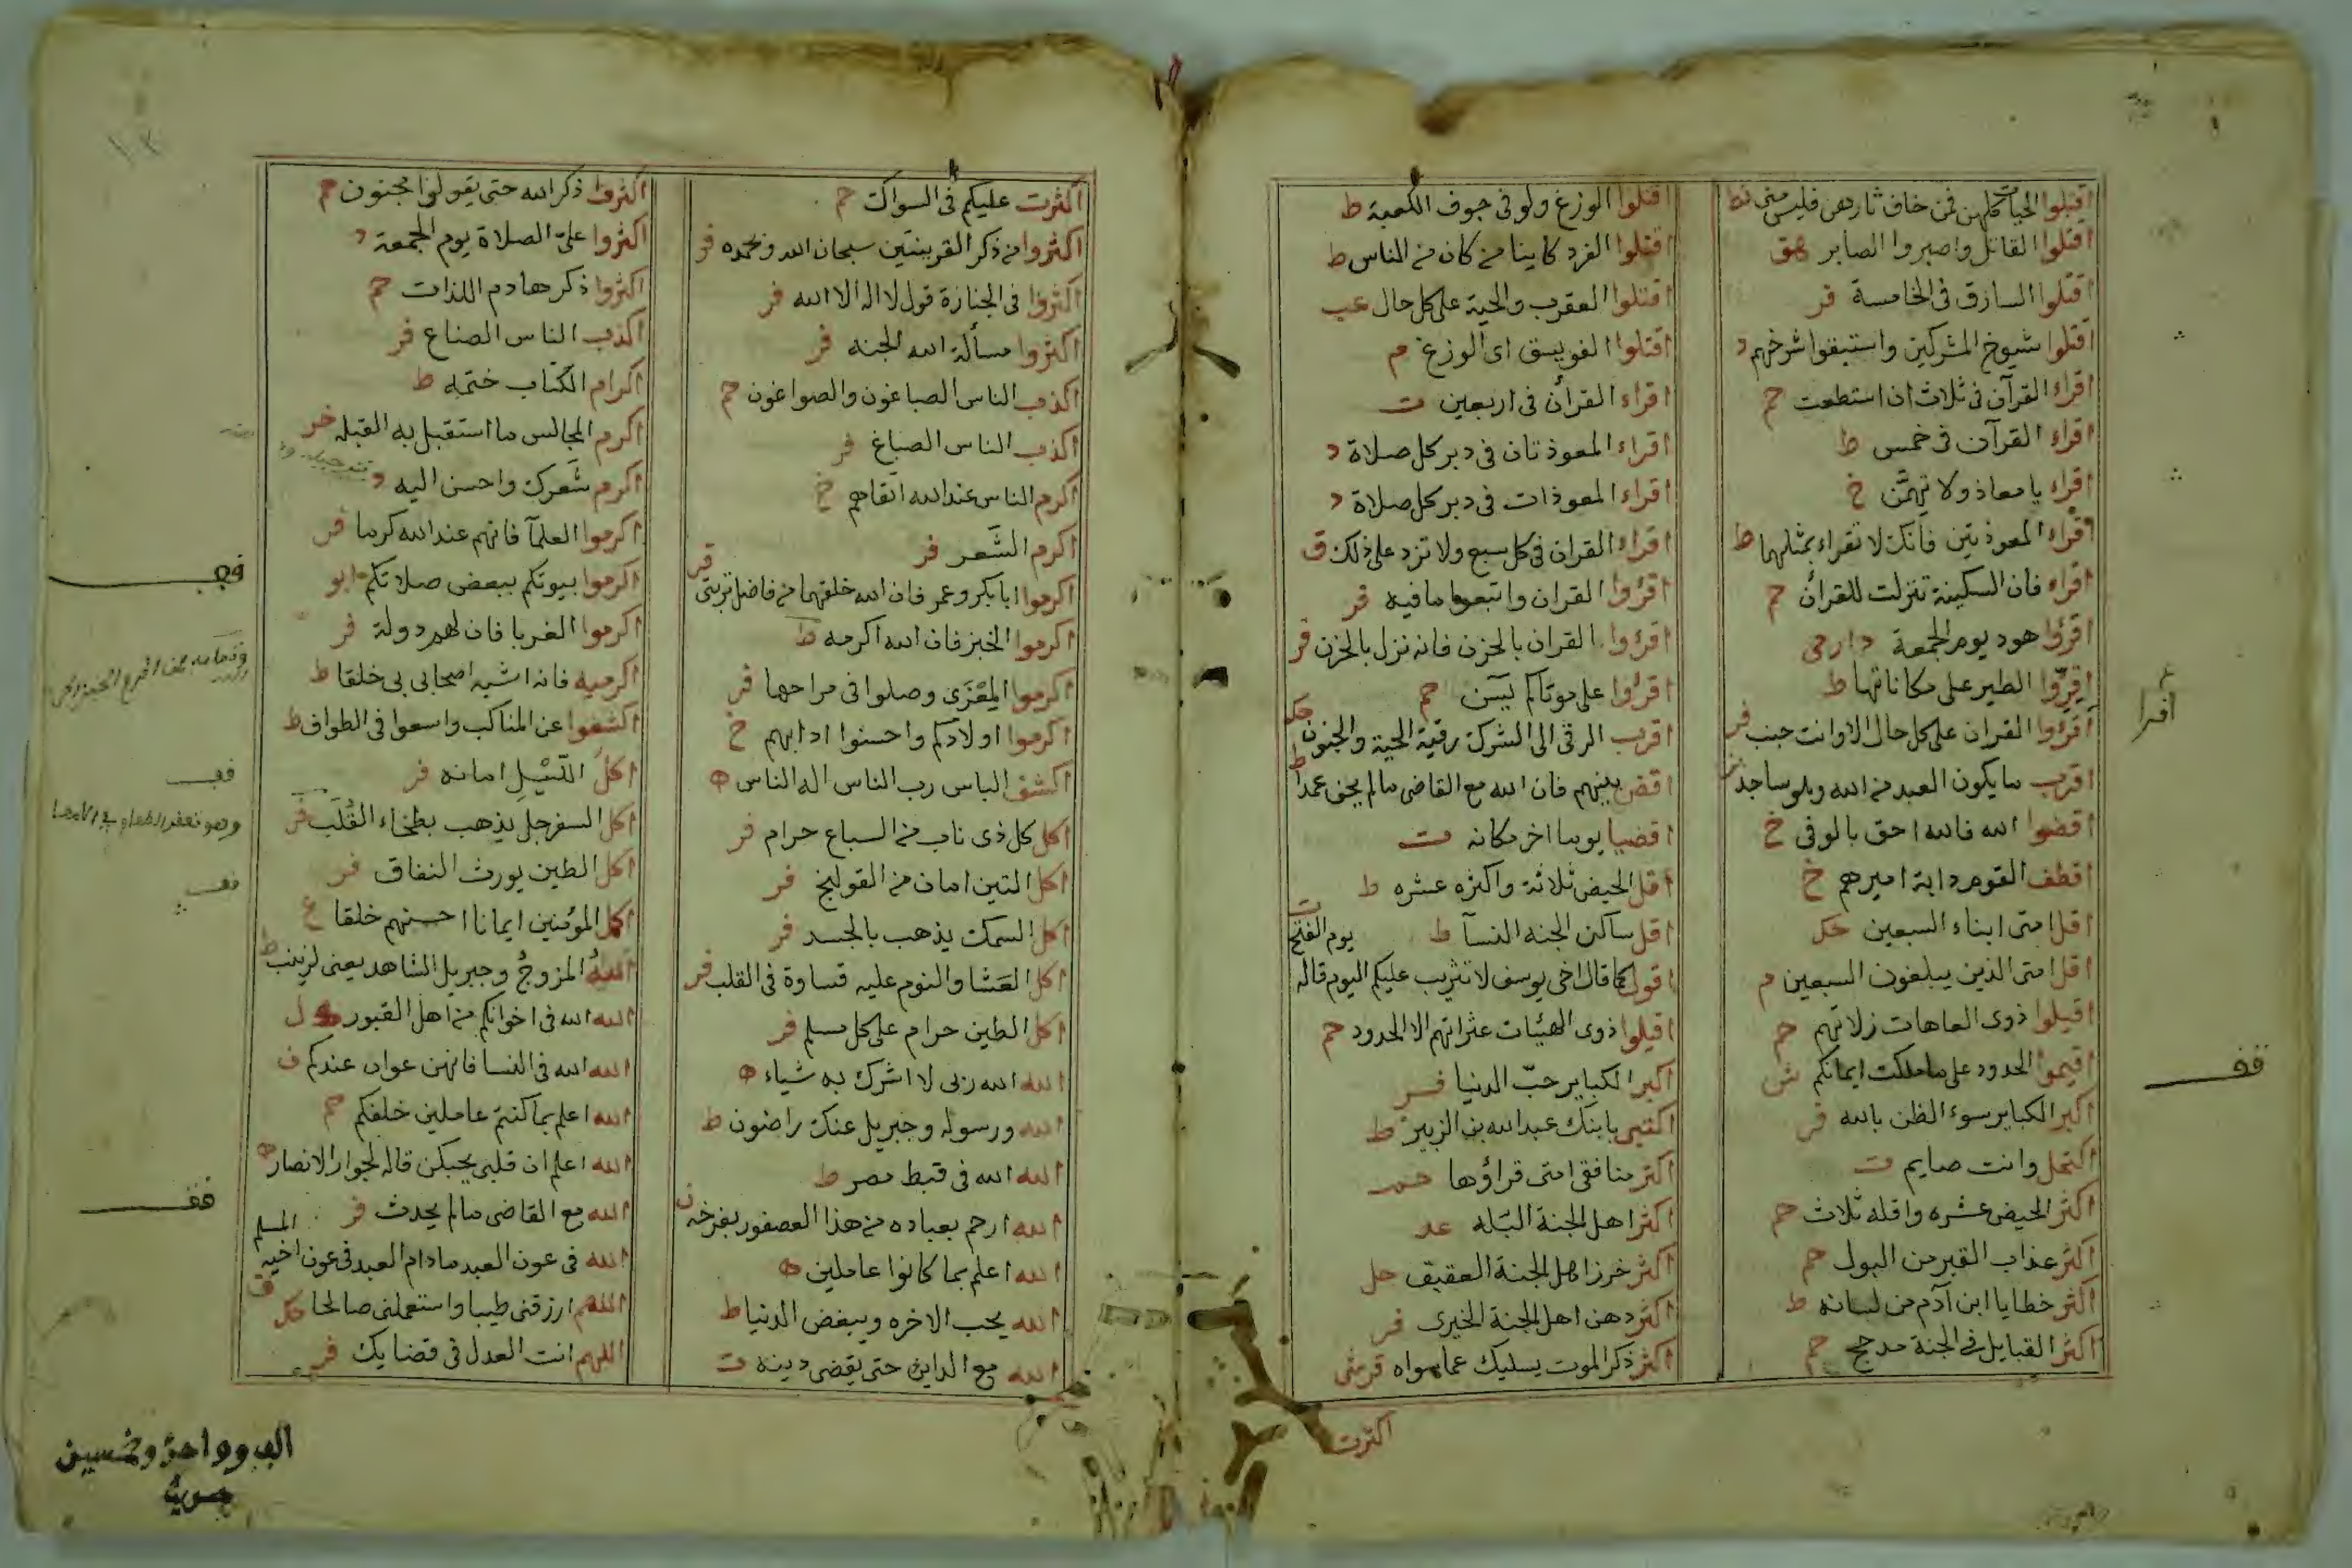 اقتلوا الحيات كلهن فمن خاف ثارهن فليس منى ط
اقتلوا القاتل واصبروا الصابر هق
اقتلوا السارق فى الخامسة فر
اقتلوا شيوخ المشركين واستبقوا شرخهم د
اقراء القرآن فى ثلاث ان استطعت حم
اقراء القرآن فى خمس ط
اقراء يا معاذ ولا تهمن خ
اقراء المعوذتين فانك لا تقراء بمثلهما ط
اقراء فان السكينة تنزلت للقرآن حم
اقرؤا هود يوم الجمعة دارمى
اقروا الطير على مكاناتها ط
اقرؤا القران على كل حال الا وانت جنب فر
اقرب ما يكون العبد من الله وهو ساجد
اقضوا الله فالله احق بالوفى خ
اقطف القوم دابة اميرهم خ
اقل امتى ابناء السبعين حكل
اقل امتى الذين يبلغون السبعين م
اقيلوا ذوى العاهات زلاتهم حم
اقيموا الحدود على ما ملكت ايمانكم ش
اكبر الكباير سوء الظن بالله فر
اكتحل وانت صايم ت
اكثر الحيض عشره واقله ثلاث حم
اكثر عذاب القبر من البول حم
اكثر خطايا ابن آدم من لسانه ط
اكثر القبايل فى الجنة مدحج حم
اقتلوا الوزغ ولو فى جوف الكعبة ط
اقتلوا الفرد كاينا من كان من الناس ط
اقتلوا العقرب والحية على كل حال عب
اقتلوا الفويسق اى الوزغ م
اقراء القرآن فى اربعين ت
اقراء المعوذتان فى دبر كل صلاة د
اقراء المعوذات فى دبر كل صلاة د
اقراء القران فى كل سبع ولا تزد على ذلك ق
اقرؤا القران واتبعوا ما فيه فر
اقرؤا القران بالحزن فانه نزل بالحزن فر
اقرؤا على موتاكم يسن حم
اقرب الرقى الى الشرك رقية الحية والجنون حك
اقض بينهم فان الله مع القاضى ما لم يحف عمدا ط
اقضيا يوما اخر مكانه ت
اقل الحيض ثلاثة واكثره عشره ط
اقل ساكن الجنه النسآ ط
يوم الفتح
اقول كما قال اخى يوسف لا تثريب عليكم اليوم قاله
اقيلوا ذوى الهيئات عثراتهم الا الحدود حم
اكبر الكباير حب الدنيا فر
اكتنى بابنك عبدالله بن الزبير ط
اكثر منافقى امتى قراؤها حم
اكثر اهل الجنة البله عد
اكثر خرز اهل الجنة العقيق حل
اكثر دهن اهل الجنة الخيرى فر
اكثر ذكر الموت يسليك عما سواه قرشى
اكثرت
اكثرت عليكم فى السواك حم
اكثروا من ذكر القرينتين سبحان الله وبحمده فر
اكثروا فى الجنازة قول لا اله الا الله فر
اكثروا مسألة الله الجنه فر
اكذب الناس الصباغون والصواغون حم
اكذب الناس الصباغ فر
اكرم الناس عند الله اتقاهم خ
اكرم الشعر فر
اكرموا ابا بكر وعمر فان الله خلقهما من فاضل تربتى فر
اكرموا الخبز فان الله اكرمه ط
اكرموا المعزى وصلوا فى مراحها فر
اكرموا اولادكم واحسنوا ادابهم خ
اكشف الباس رب الناس اله الناس ه
اكل كل ذى ناب من السباع حرام فر
اكل التين امان من القولنج فر
اكل السمك يذهب بالجسد فر
اكل العشا والنوم عليه قساوة فى القلب فر
اكل الطين حرام على كل مسلم فر
الله الله ربى لا اشرك به شياء ه
الله ورسوله وجبريل عنك راضون ط
الله الله فى قبط مصر ط
الله ارحم بعباده من هذا العصفور بفرخه ن
الله اعلم بما كانوا عاملين ه
الله يحب الاخره ويبغض الدنيا ط
الله مع الداين حتى يقضى دينه ت
اكثروا ذكر الله حتى يقولوا مجنون حم
اكثروا على الصلاة يوم الجمعة د
اكثروا ذكر هادم اللذات حم
اكذب الناس الصناع فر
اكرام الكتاب ختمه ط
اكرم المجالس ما استقبل به القبله
اكرم شعرك واحسن اليه د
اكرموا العلمآ فانهم عند الله كرما فر
اكرموا بيوتكم ببعض صلاتكم ابو
اكرموا الغربا فان لهم دولة فر
اكرميه فانه اشبه اصحابى بى خلقا ط
اكشفوا عن المناكب واسعوا فى الطواف ط
اكل الليل امانه فر
اكل السفرجل يذهب بطخاء القلب فر
اكل الطين يورث النفاق فر
اكمل المؤمنين ايمانا احسنهم خلقا ع
الله المزوج وجبريل الشاهد يعنى لزينب ط
الله الله فى اخوانكم من اهل القبور ل
الله الله فى النسا فانهن عوان عندكم ف
الله اعلم بما كنتم عاملين خلفكم حم
الله اعلم ان قلبى يحبكن قاله لجوار الانصار ه
الله مع القاضى ما لم يحدث فر
المسلم
الله فى عون العبد ما دام العبد فى عون اخيه ق
اللهم ارزقنى طيبا واستعملنى صالحا حكل
اللهم انت العدل فى قضايك فر
اقرا
قف
قف
قف